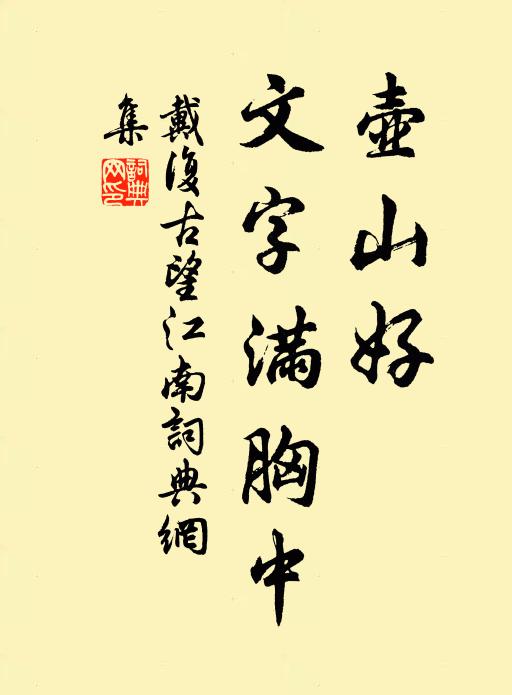 壺山好
文字滿胸中
戴復古望江南詞典網
集
詞典
网印